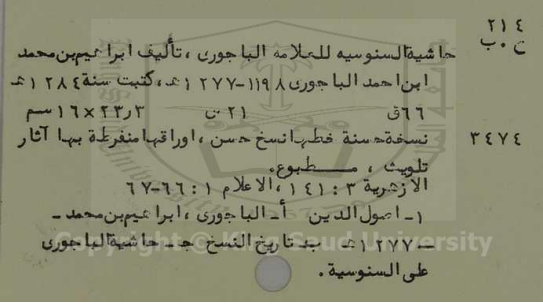 ٢١٤
ح ٠ ب
حاشية السنوسيه للعلامه الباجورى ، تأليف ابراهيم بن محمد
ابن احمد الباجورى ١١٩٨-١٢٧٧هـ، كتبت سنة ١٢٨٤هـ
٦٦ق ٢١ س ٢٣٫٣×١٦سم
٣٤٧٤ نسخة حسنة خطها نسخ حسن ، اوراقها منفرطة بها آثار
تلويث ، مطبوع.
الازهرية ٣ : ١٤١ ،الاعلام ١ : ٦٦-٦٧
١- اصول الدين أ- الباجورى ، ابراهيم بن محمد -
١٢٧٧هـ ب- تاريخ النسخ جـ- حاشية الباجورى
على السنوسية.
Copyright © King Saud University